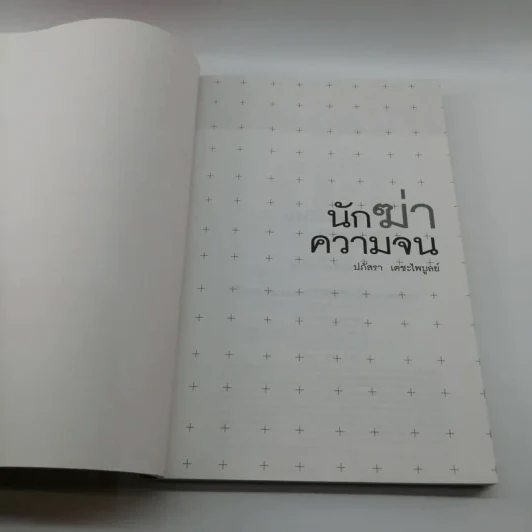 นักฆ่า
ความจน
ปภัสรา เตชะไพบูลย์